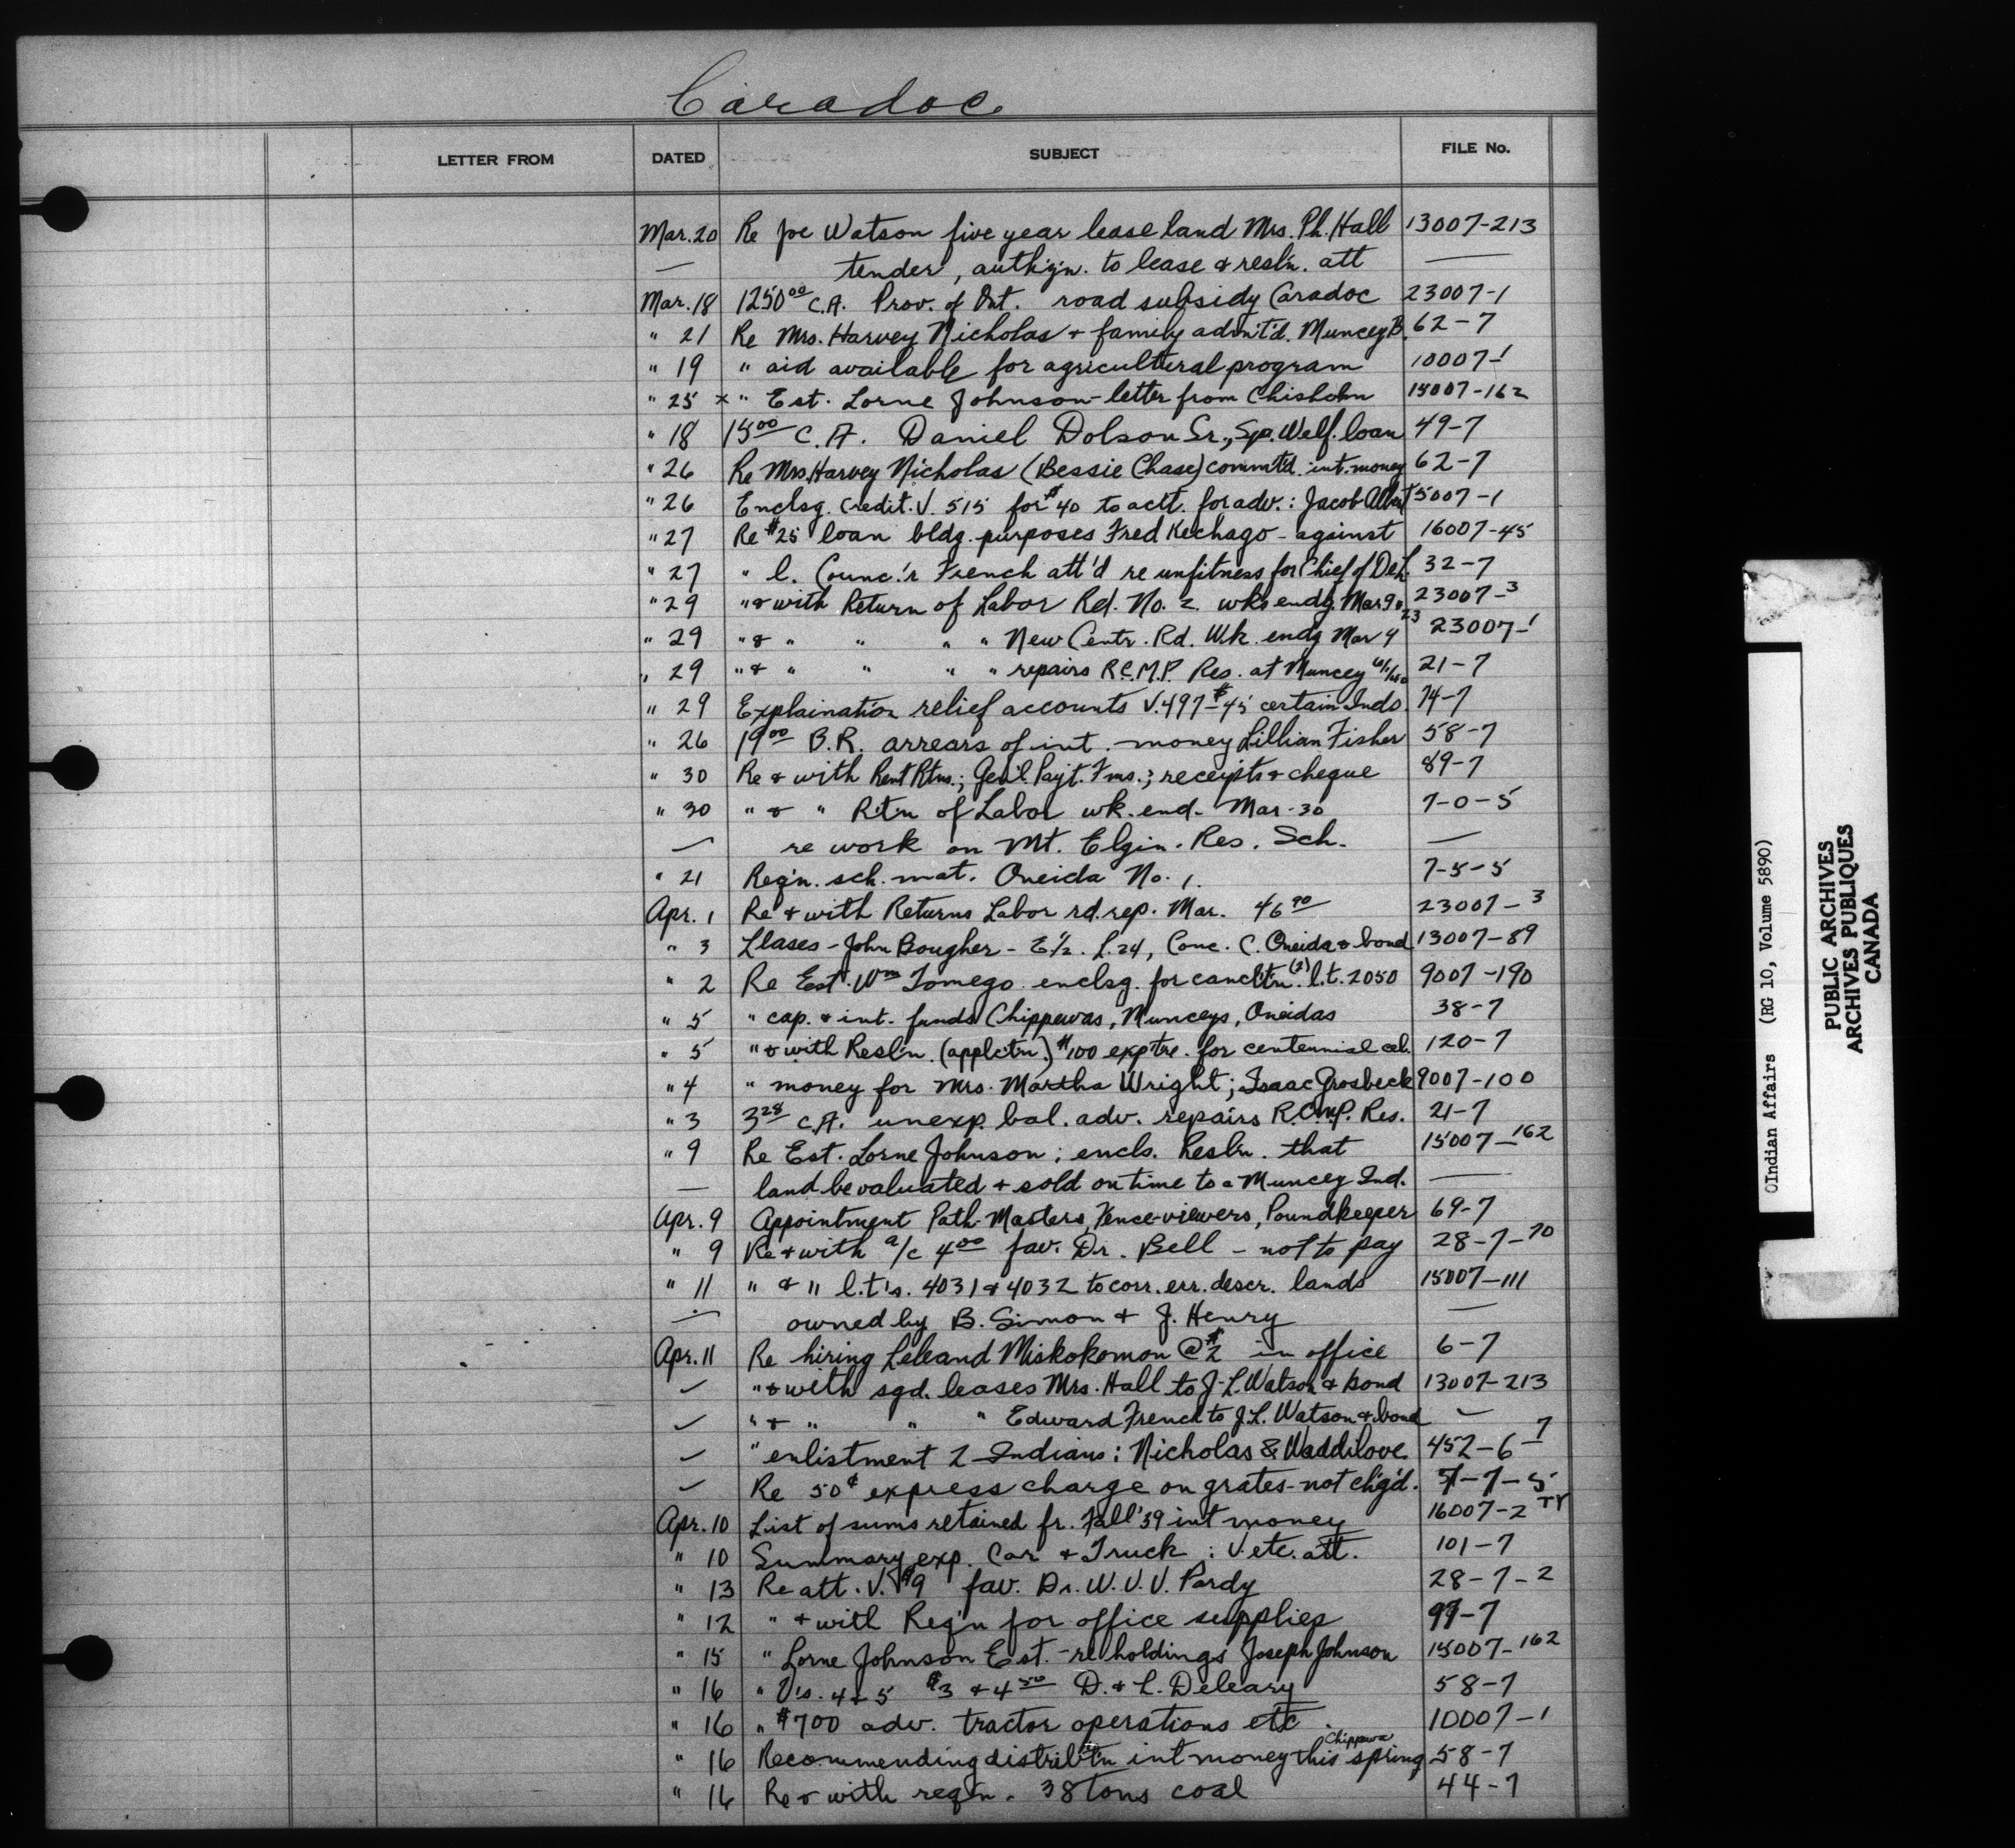 Caradoc
LETTER FROM DATED SUBJECT FILE No.
Mar. 20 Re Joe Watson five year lease land Mrs. Ph. Hall 13007-213
— tender, auth'z'n. to lease & resl'n. att —
Mar. 18 1250⁰⁰ C.A. Prov. of Ont. road subsidy Caradoc 23007-1
" 21 Re Mrs. Harvey Nicholas + family admit'd. Muncey B. 62-7
" 19 " aid available for agricultural program 10007-1
" 25 x " Est. Lorne Johnson - letter from Chisholm 15007-162
" 18 15⁰⁰ C.A. Daniel Dolson Sr., Sp. Welf. loan 49-7
" 26 Re Mrs. Harvey Nicholas (Bessie Chase) commt'd. int. money 62-7
" 26 Enclsg. Credit. V. 515 for $40 to actt. for adv.: Jacob Albert 5007-1
" 27 Re $25 loan bldg. purposes Fred Kechago - against 16007-45
" 27 " l. Counc'r French att'd re unfitness for Chief of Del. 32-7
" 29 " & with Return of Labor Rd. No. 2. wks endg. Mar 9 & 23 23007-3
" 29 " & " " " " New Centr. Rd. Wk. endg Mar 4 23007-1
" 29 " & " " " " repairs R.C.M.P. Res. at Muncey 21-7
" 29 Explaination relief accounts V. 497-$45 certain Inds. 74-7
" 26 19⁰⁰ B.R. arrears of int. money Lillian Fisher 58-7
" 30 Re & with Rent Rtns.; Gen'l. Payt. Fms.; receipts & cheque 89-7
" 30 " & " Rt'n of Labor wk. end. Mar-30 7-0-5
— re work on Mt. Elgin. Res. Sch. —
" 21 Req'n. sch. mat. Oneida No. 1. 7-5-5
Apr. 1 Re & with Returns Labor rd. rep. Mar. 46⁹⁰ 23007-3
" 3 Llases - John Bougher - E½. L. 24, Conc. C. Oneida & bond 13007-89
" 2 Re Est. Wm Tomego enclsg. for canclt'n. (2) l.t. 2050 9007-190
" 5 " cap. & int. funds Chippewas, Munceys, Oneidas 38-7
" 5 " & with Resl'n. (applct'n.) $100 exp'tre. for centennial cel. 120-7
" 4 " money for Mrs. Martha Wright; Isaac Grosbeck 9007-100
" 3 3²⁸ C.A. unexp. bal. adv. repairs R.C.M.P. Res. 21-7
" 9 Re Est. Lorne Johnson; encls. Resl'n. that 15007-162
— land be valuated & sold on time to a Muncey Ind. —
Apr. 9 Appointment Path-Masters, Fence-viewers, Poundkeeper 69-7
" 9 Re & with a/c 4⁰⁰ fav. Dr. Bell - not to pay 28-7-70
" 11 " & " l.t's. 4031 & 4032 to corr. err. descr. lands 15007-111
— owned by B. Simon & J. Henry —
Apr. 11 Re hiring Leleand Miskokomon @ $2 in office 6-7
✓ " & with sgd. leases Mrs. Hall to J. L. Watson & bond 13007-213
✓ " & " " " Edward French to J.L. Watson & bond —
✓ " enlistment 2 Indians: Nicholas & Waddilove 452-6-7
✓ Re 50¢ express charge on grates - not ch'g'd. 7-7-5
Apr. 10 List of sums retained fr. Fall '39 int money 16007-2
" 10 Summary exp. Car & Truck: V. etc. att. 101-7
" 13 Re att. V. $9 fav. Dr. W. V. V. Pardy 28-7-2
" 12 " & with Req'n for office supplies 99-7
" 15 " Lorne Johnson Est. - re holdings Joseph Johnson 15007-162
" 16 " V's. 4 & 5 $3 & 4⁵⁰ D. & L. Deleary 58-7
" 16 " $700 adv. tractor operations etc. 10007-1
" 16 Recommending distribt'n int money this Chippewa spring 58-7
" 16 Re & with req'n. 38 tons coal 44-7
Indian Affairs (RG 10, Volume 5890)
PUBLIC ARCHIVES
ARCHIVES PUBLIQUES
CANADA